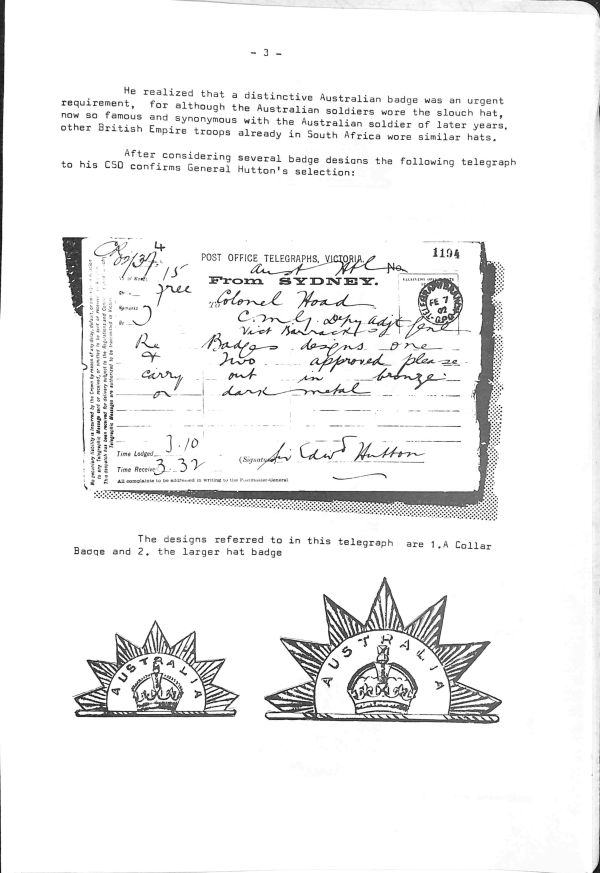 - 3 -
He realized that a distinctive Australian badge was an urgent
requirement, for although the Australian soldiers wore the slouch hat,
now so famous and synonymous with the Australian soldier of later years,
other British Empire troops already in South Africa wore similar hats.
After considering several badge desions the following telegraph
to his CSO confirms General Hutton's selection:
1194
POST OFFICE TELEGRAPHS, VICTORIA.
Aust Htl No
From SYDNEY.
15
free
To Colonel Hoad
C.M.G. Depy Adjt Genl
Vict Barracks
FE 7
02
G.P.O.
Re Badges designs one
& two approved please
carry out in bronze
or dark metal
Time Lodged 3.10
Time Receive 3 32
(Signature) Sir Edwd Hutton
All complaints to be addressed in writing to the Postmaster-General
The designs referred to in this telegraph are 1.A Collar
Badge and 2. the larger hat badge
AUSTRALIA
AUSTRALIA